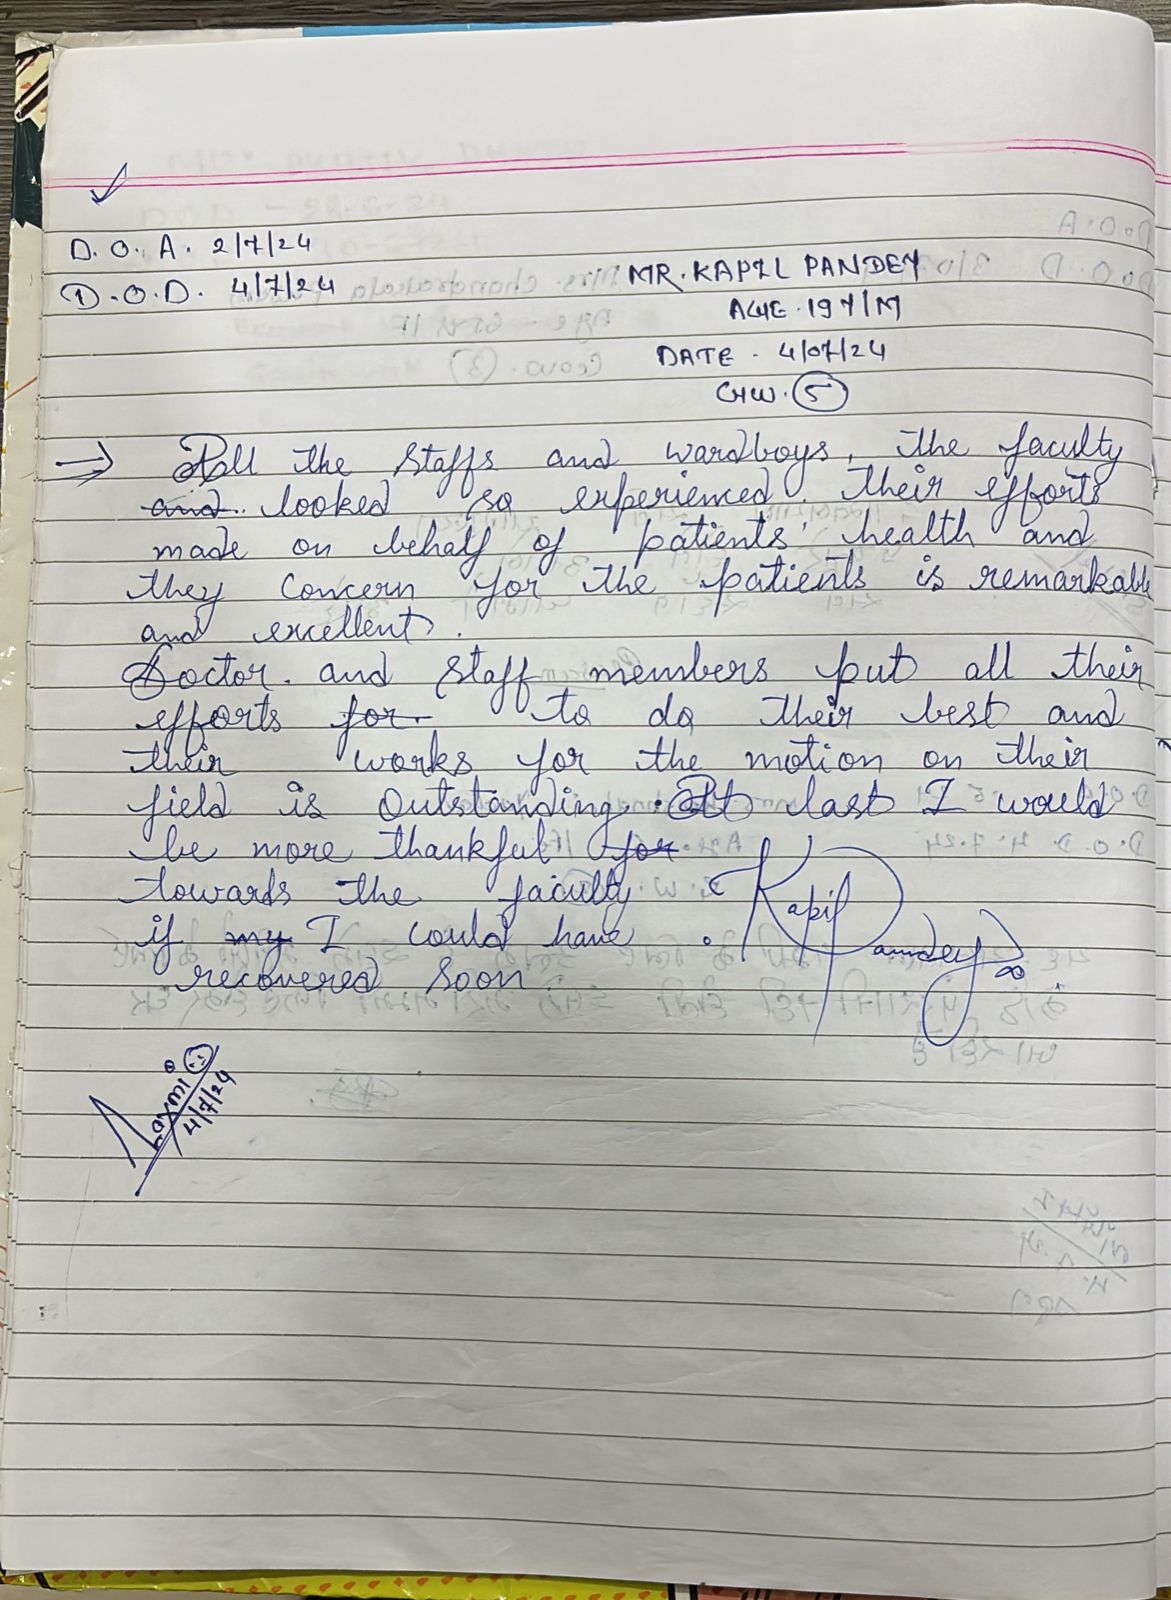 D.O.A. 2/7/24
D.O.D. 4/7/24
MR. KAPIL PANDEY
AGE. 19Y/M
DATE - 4/07/24
GHW. 5
⇒ All the staffs and wardboys, the faculty
and looked so experienced. Their efforts
made on behalf of patients' health and
they concern for the patients is remarkable
and excellent.
Doctor. and staff members put all their
efforts for. to do their best and
their works for the motion on their
field is Outstanding. At last I would
be more thankful for
towards the faculty
if my I could have
recovered soon.
Kapil Pandey
Laxmi
4/7/24